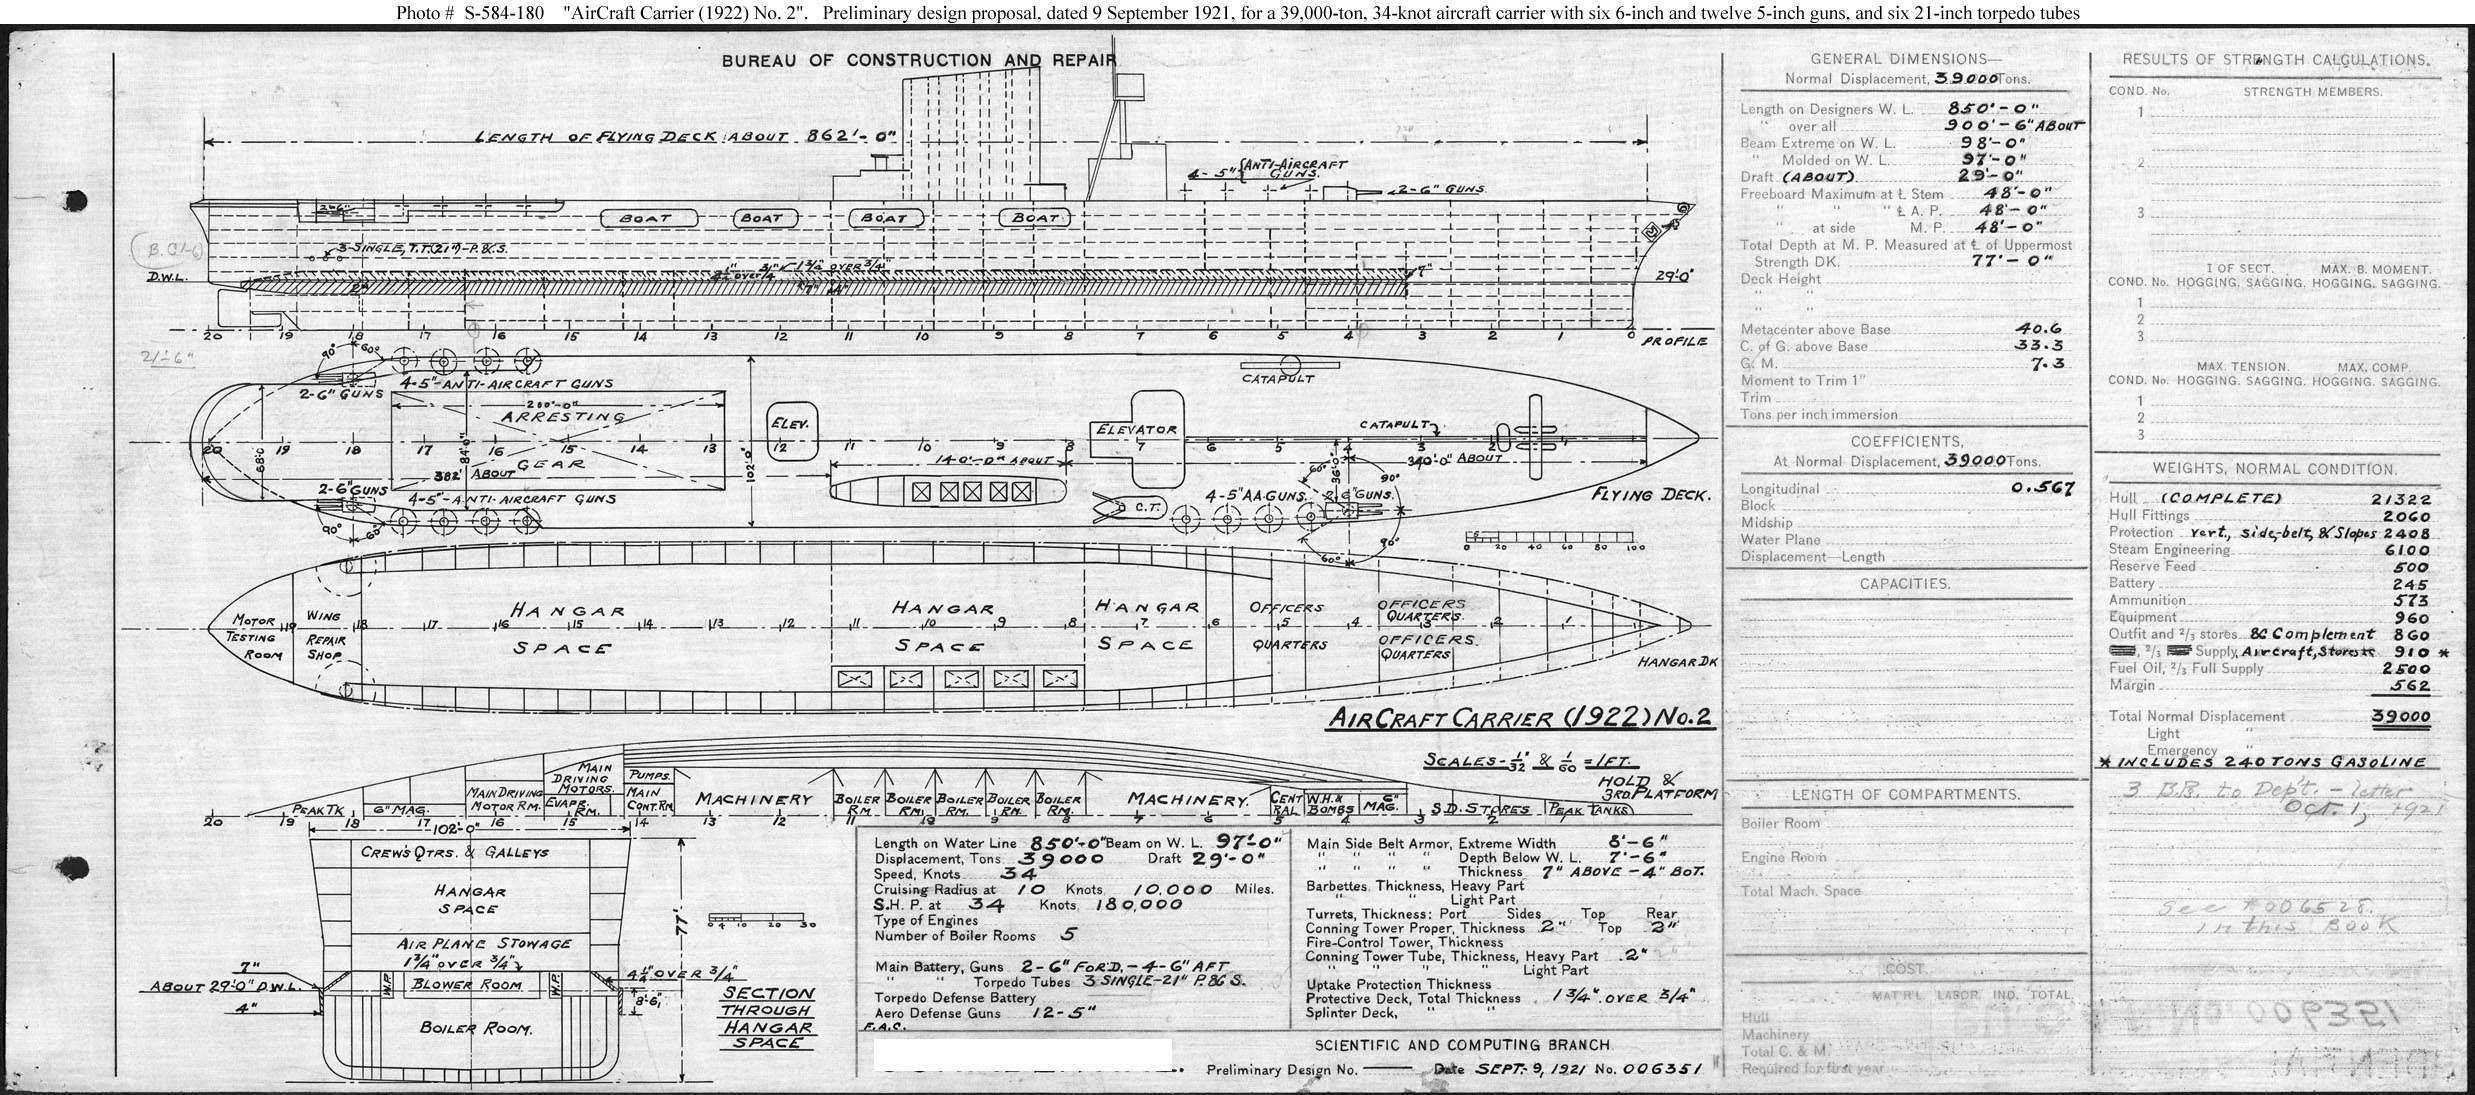 Photo # S-584-180 "AirCraft Carrier (1922) No. 2". Preliminary design proposal, dated 9 September 1921, for a 39,000-ton, 34-knot aircraft carrier with six 6-inch and twelve 5-inch guns, and six 21-inch torpedo tubes
BUREAU OF CONSTRUCTION AND REPAIR
LENGTH OF FLYING DECK ABOUT 862'-0"
4-5" ANTI-AIRCRAFT GUNS.
2-6" GUNS
2-6"
BOAT BOAT BOAT BOAT
3-SINGLE, T.T.(21")-P.&S.
D.W.L.
1 3/4" OVER 3/4"
7"
2"
7" 4"
29'-0"
20 19 18 17 16 15 14 13 12 11 10 9 8 7 6 5 4 3 2 1 0
PROFILE
21'-6"
90° 60°
4-5"-ANTI-AIRCRAFT GUNS
2-6" GUNS
CATAPULT
200'-0"
ARRESTING
GEAR
ELEV.
ELEVATOR
CATAPULT
20 19 18 17 16 15 14 13 12 11 10 9 8 7 6 5 4 3 2 1
68'0
84'-0"
102'-0"
382' ABOUT
140'-0" ABOUT
36'-0"
340'-0" ABOUT
2-6" GUNS
4-5"-ANTI-AIRCRAFT GUNS
90° 60°
C.T.
4-5" AA.GUNS.
2-6" GUNS.
60° 90°
60° 90°
FLYING DECK.
20 40 60 80 100
MOTOR TESTING ROOM
WING REPAIR SHOP
HANGAR SPACE
HANGAR SPACE
HANGAR SPACE
OFFICERS QUARTERS
OFFICERS QUARTERS
OFFICERS QUARTERS
19 18 17 16 15 14 13 12 11 10 9 8 7 6 5 4 3 2 1
HANGAR DK
AIRCRAFT CARRIER (1922) NO. 2
SCALES- 1/32" & 1/60 = 1 FT.
HOLD & 3RD. PLATFORM
PEAK TK
6" MAG.
MAIN DRIVING MOTOR RM.
MAIN DRIVING MOTORS.
EVAPR. RM.
PUMPS.
MAIN CONT. RM.
MACHINERY
BOILER RM.
BOILER RM.
BOILER RM.
BOILER RM.
BOILER RM.
MACHINERY.
CENTRAL
W.H.& BOMBS
6" MAG.
S.D. STORES
PEAK TANKS
20 19 18 17 16 15 14 13 12 11 10 9 8 7 6 5 4 3 2 1
102'-0"
CREW'S QTRS. & GALLEYS
HANGAR SPACE
AIR PLANE STOWAGE
1 3/4" OVER 3/4"
W.P.
BLOWER ROOM
W.P.
BOILER ROOM.
7"
ABOUT 29'-0" D.W.L.
4"
4 1/4" OVER 3/4"
8'-6"
77'
10 20 30
SECTION
THROUGH
HANGAR
SPACE
Length on Water Line 850'-0" Beam on W. L. 97'-0"
Displacement, Tons 39000 Draft 29'-0"
Speed, Knots 34
Cruising Radius at 10 Knots 10,000 Miles.
S.H.P. at 34 Knots 180,000
Type of Engines
Number of Boiler Rooms 5
Main Battery, Guns 2-6" FOR'D,-4-6" AFT
" " Torpedo Tubes 3 SINGLE-21" P.&S.
Torpedo Defense Battery
Aero Defense Guns 12-5"
F.A.C.
Main Side Belt Armor, Extreme Width 8'-6"
" " " " Depth Below W. L. 7'-6"
" " " " Thickness 7" ABOVE-4" BOT.
Barbettes, Thickness, Heavy Part
" " Light Part
Turrets, Thickness: Port Sides Top Rear
Conning Tower Proper, Thickness 2" Top 2"
Fire-Control Tower, Thickness
Conning Tower Tube, Thickness, Heavy Part 2"
" " " " Light Part
Uptake Protection Thickness
Protective Deck, Total Thickness 1 3/4" OVER 3/4"
Splinter Deck, " "
SCIENTIFIC AND COMPUTING BRANCH
Preliminary Design No. Date SEPT. 9, 1921 No. 006351
GENERAL DIMENSIONS—
Normal Displacement, 39000 Tons.
Length on Designers W. L. 850'-0"
" over all 900'-6" ABOUT
Beam Extreme on W. L. 98'-0"
" Molded on W. L. 97'-0"
Draft (ABOUT) 29'-0"
Freeboard Maximum at ℄ Stem 48'-0"
" " ℄ A. P. 48'-0"
" at side M. P. 48'-0"
Total Depth at M. P. Measured at ℄ of Uppermost
Strength DK. 77'-0"
Deck Height
" "
" "
Metacenter above Base 40.6
C. of G. above Base 33.3
G. M. 7.3
Moment to Trim 1"
Trim
Tons per inch immersion
COEFFICIENTS,
At Normal Displacement, 39000 Tons.
Longitudinal 0.567
Block
Midship
Water Plane
Displacement—Length
CAPACITIES.
LENGTH OF COMPARTMENTS.
Boiler Room
Engine Room
Total Mach. Space
COST.
MAT'R'L LABOR. IND. TOTAL
Hull
Machinery
Total C. & M.
Required for first year
RESULTS OF STRENGTH CALCULATIONS.
COND. No. STRENGTH MEMBERS.
1
2
3
I OF SECT. MAX. B. MOMENT.
COND. No. HOGGING. SAGGING. HOGGING. SAGGING.
1
2
3
MAX. TENSION. MAX. COMP.
COND. No. HOGGING. SAGGING. HOGGING. SAGGING.
1
2
3
WEIGHTS, NORMAL CONDITION.
Hull (COMPLETE) 21322
Hull Fittings 2060
Protection vert., side-belt, & Slopes 2408
Steam Engineering 6100
Reserve Feed 500
Battery 245
Ammunition 573
Equipment 960
Outfit and 2/3 stores & Complement 860
2/3 Supply, Aircraft, Stores 910 *
Fuel Oil, 2/3 Full Supply 2500
Margin 562
Total Normal Displacement 39000
Light "
Emergency "
* INCLUDES 240 TONS GASOLINE
3 B.R. to Dep't. - letter
Oct. 1, 1921
See # 006528
in this Book